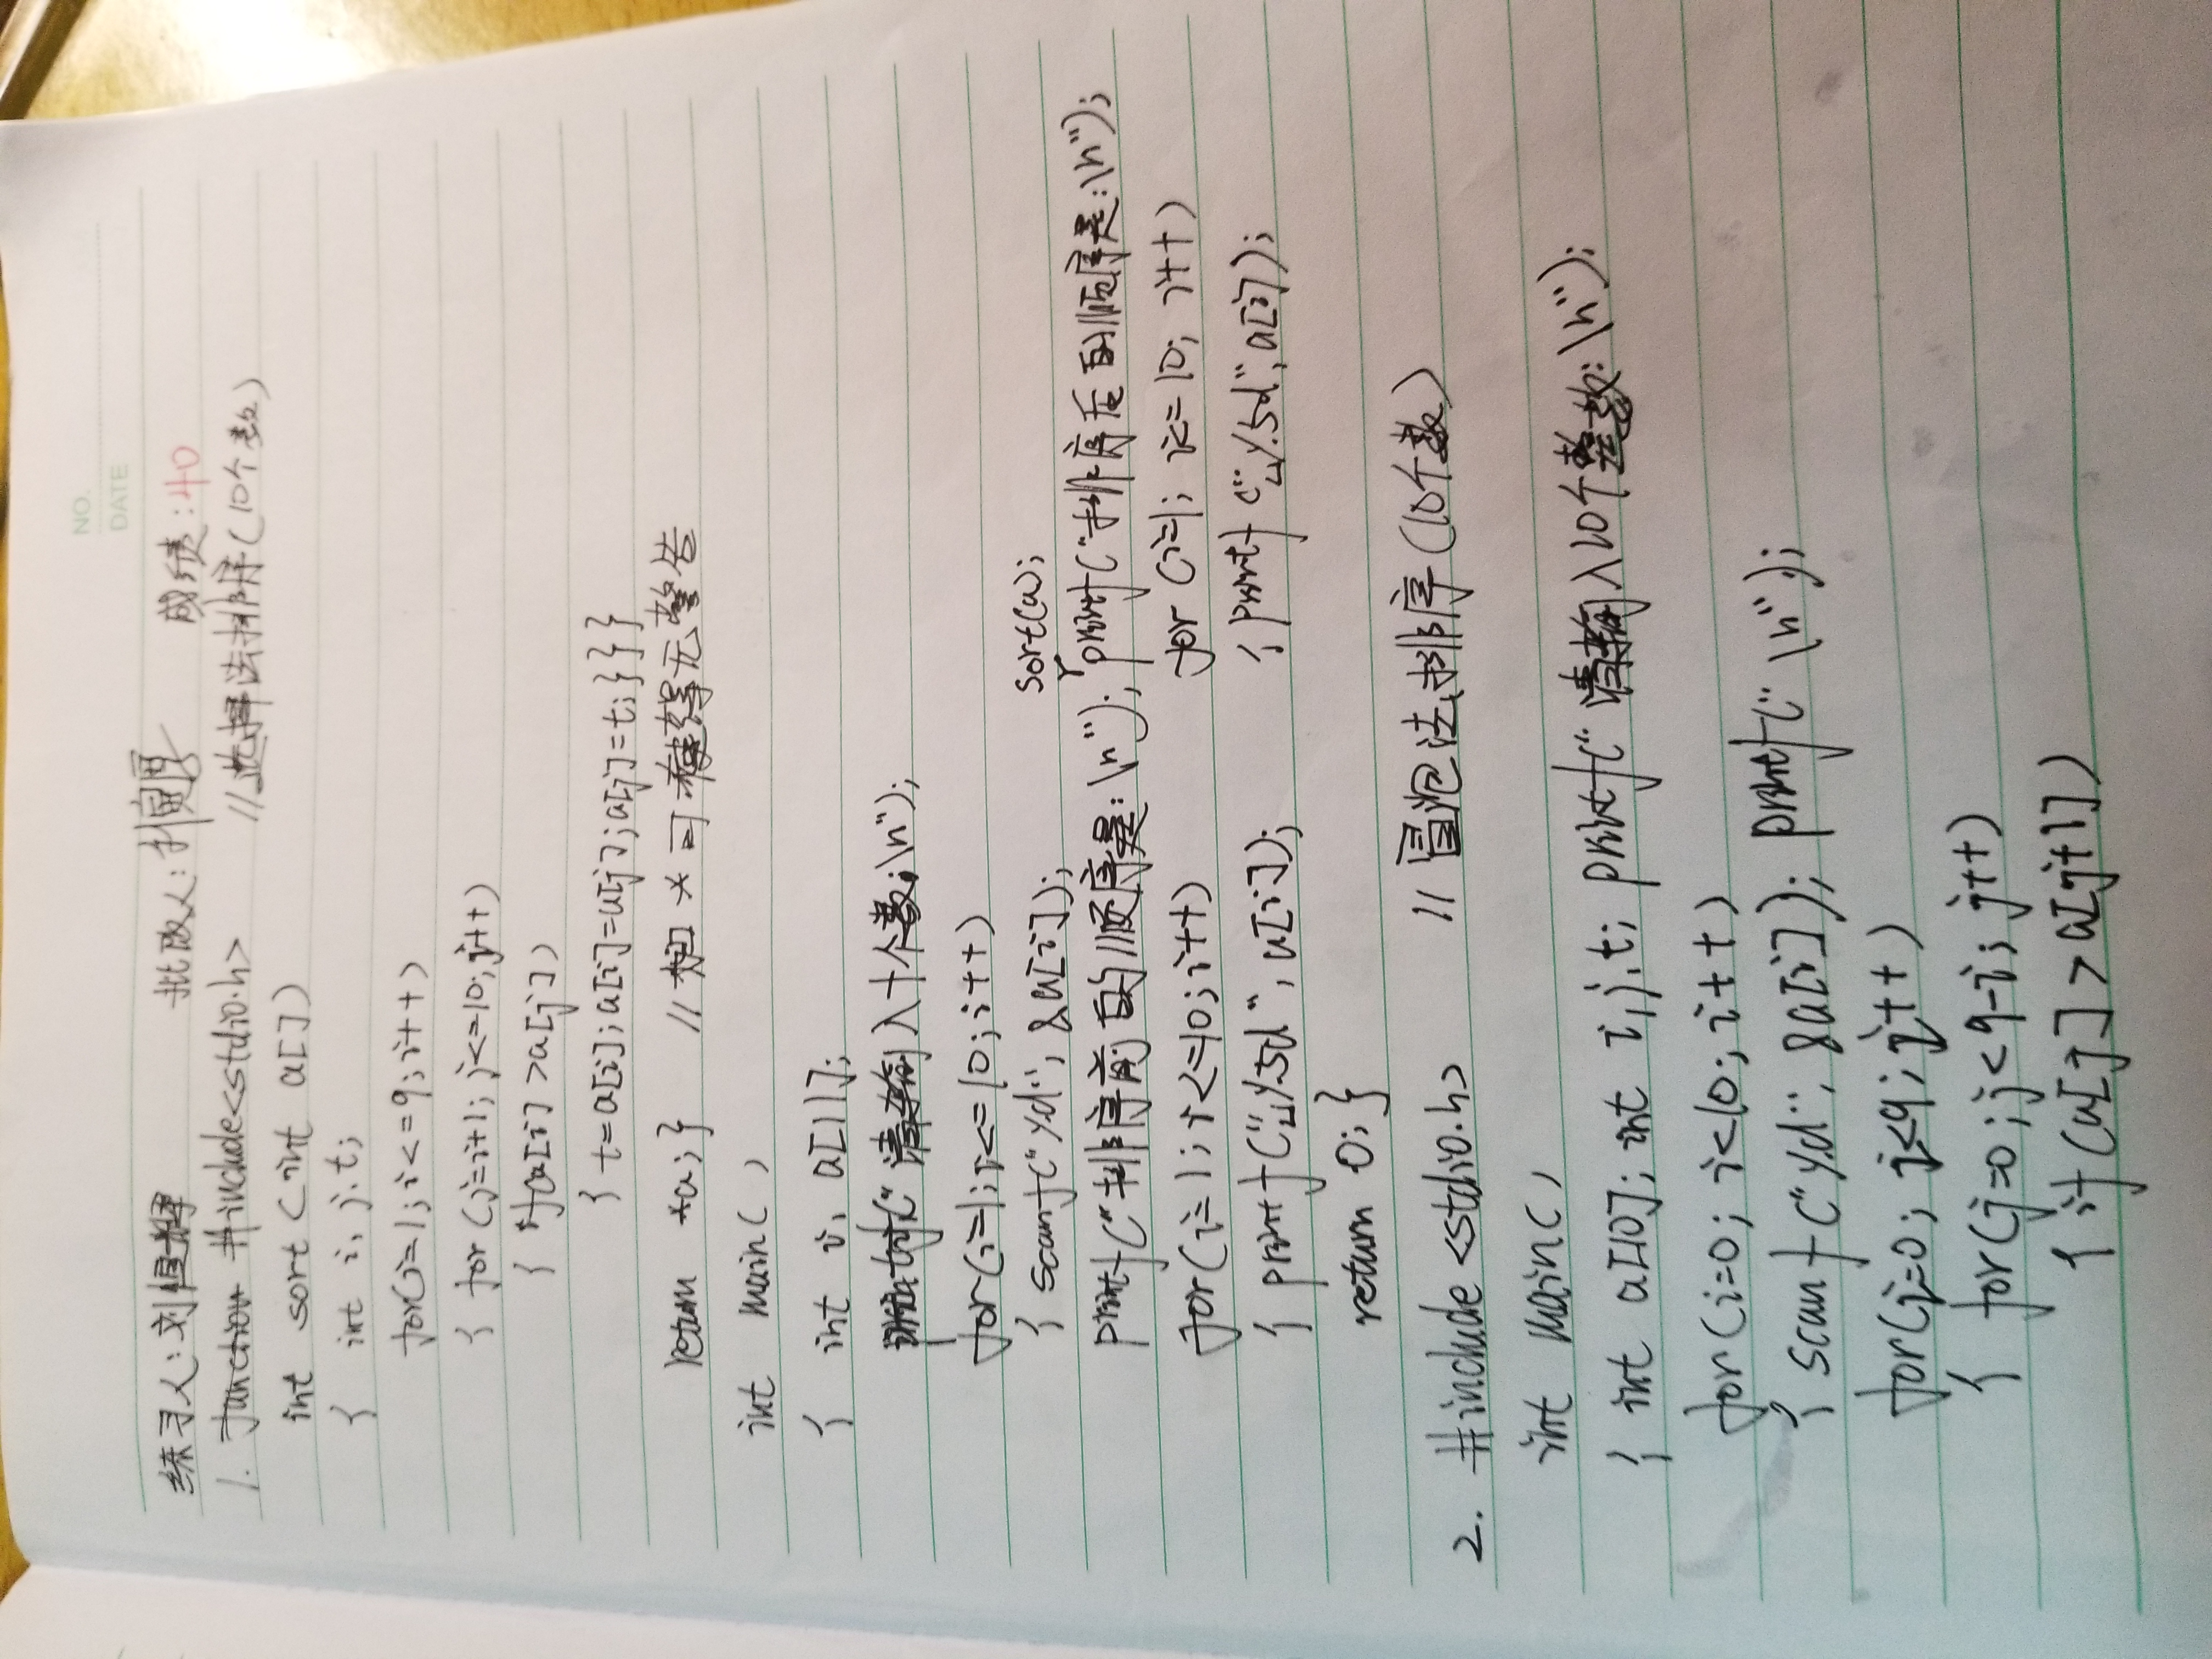 NO.
DATE
练习人: 刘恒辉 批改人: 成绩: 40
1. function #include<stdio.h> //选择法排序(10个数)
int sort (int a[])
{ int i, j, t;
for(i=1; i<=9; i++)
{ for (j=i+1; j<=10; j++)
{ if(a[i] >a[j])
{ t=a[i]; a[i]=a[j]; a[j]=t; } } }
return *a; } // 加 * 可使得无警告
int main( )
{ int i, a[11];
printf(" 请输入十个数:\n");
for(i=1; i<= 10; i++)
{ scanf("%d", &a[i]); sort(a);
printf("排序前的顺序是: \n"); printf("排序后的顺序是:\n");
for(i=1; i<=10; i++) for (i=1; i<= 10; i++)
{ printf("␣%5d", a[i]); { printf("␣%5d", a[i]);
return 0; }
2. #include <stdio.h> // 冒泡法排序(10个数)
int main( )
{ int a[10]; int i, j, t; printf(" 请输入10个整数: \n");
for(i=0; i<10; i++)
{ scanf("%d", &a[i]); printf(" \n");
for(i=0; i<9; i++)
{ for(j=0; j<9-i; j++)
{ if (a[j] > a[j+1])